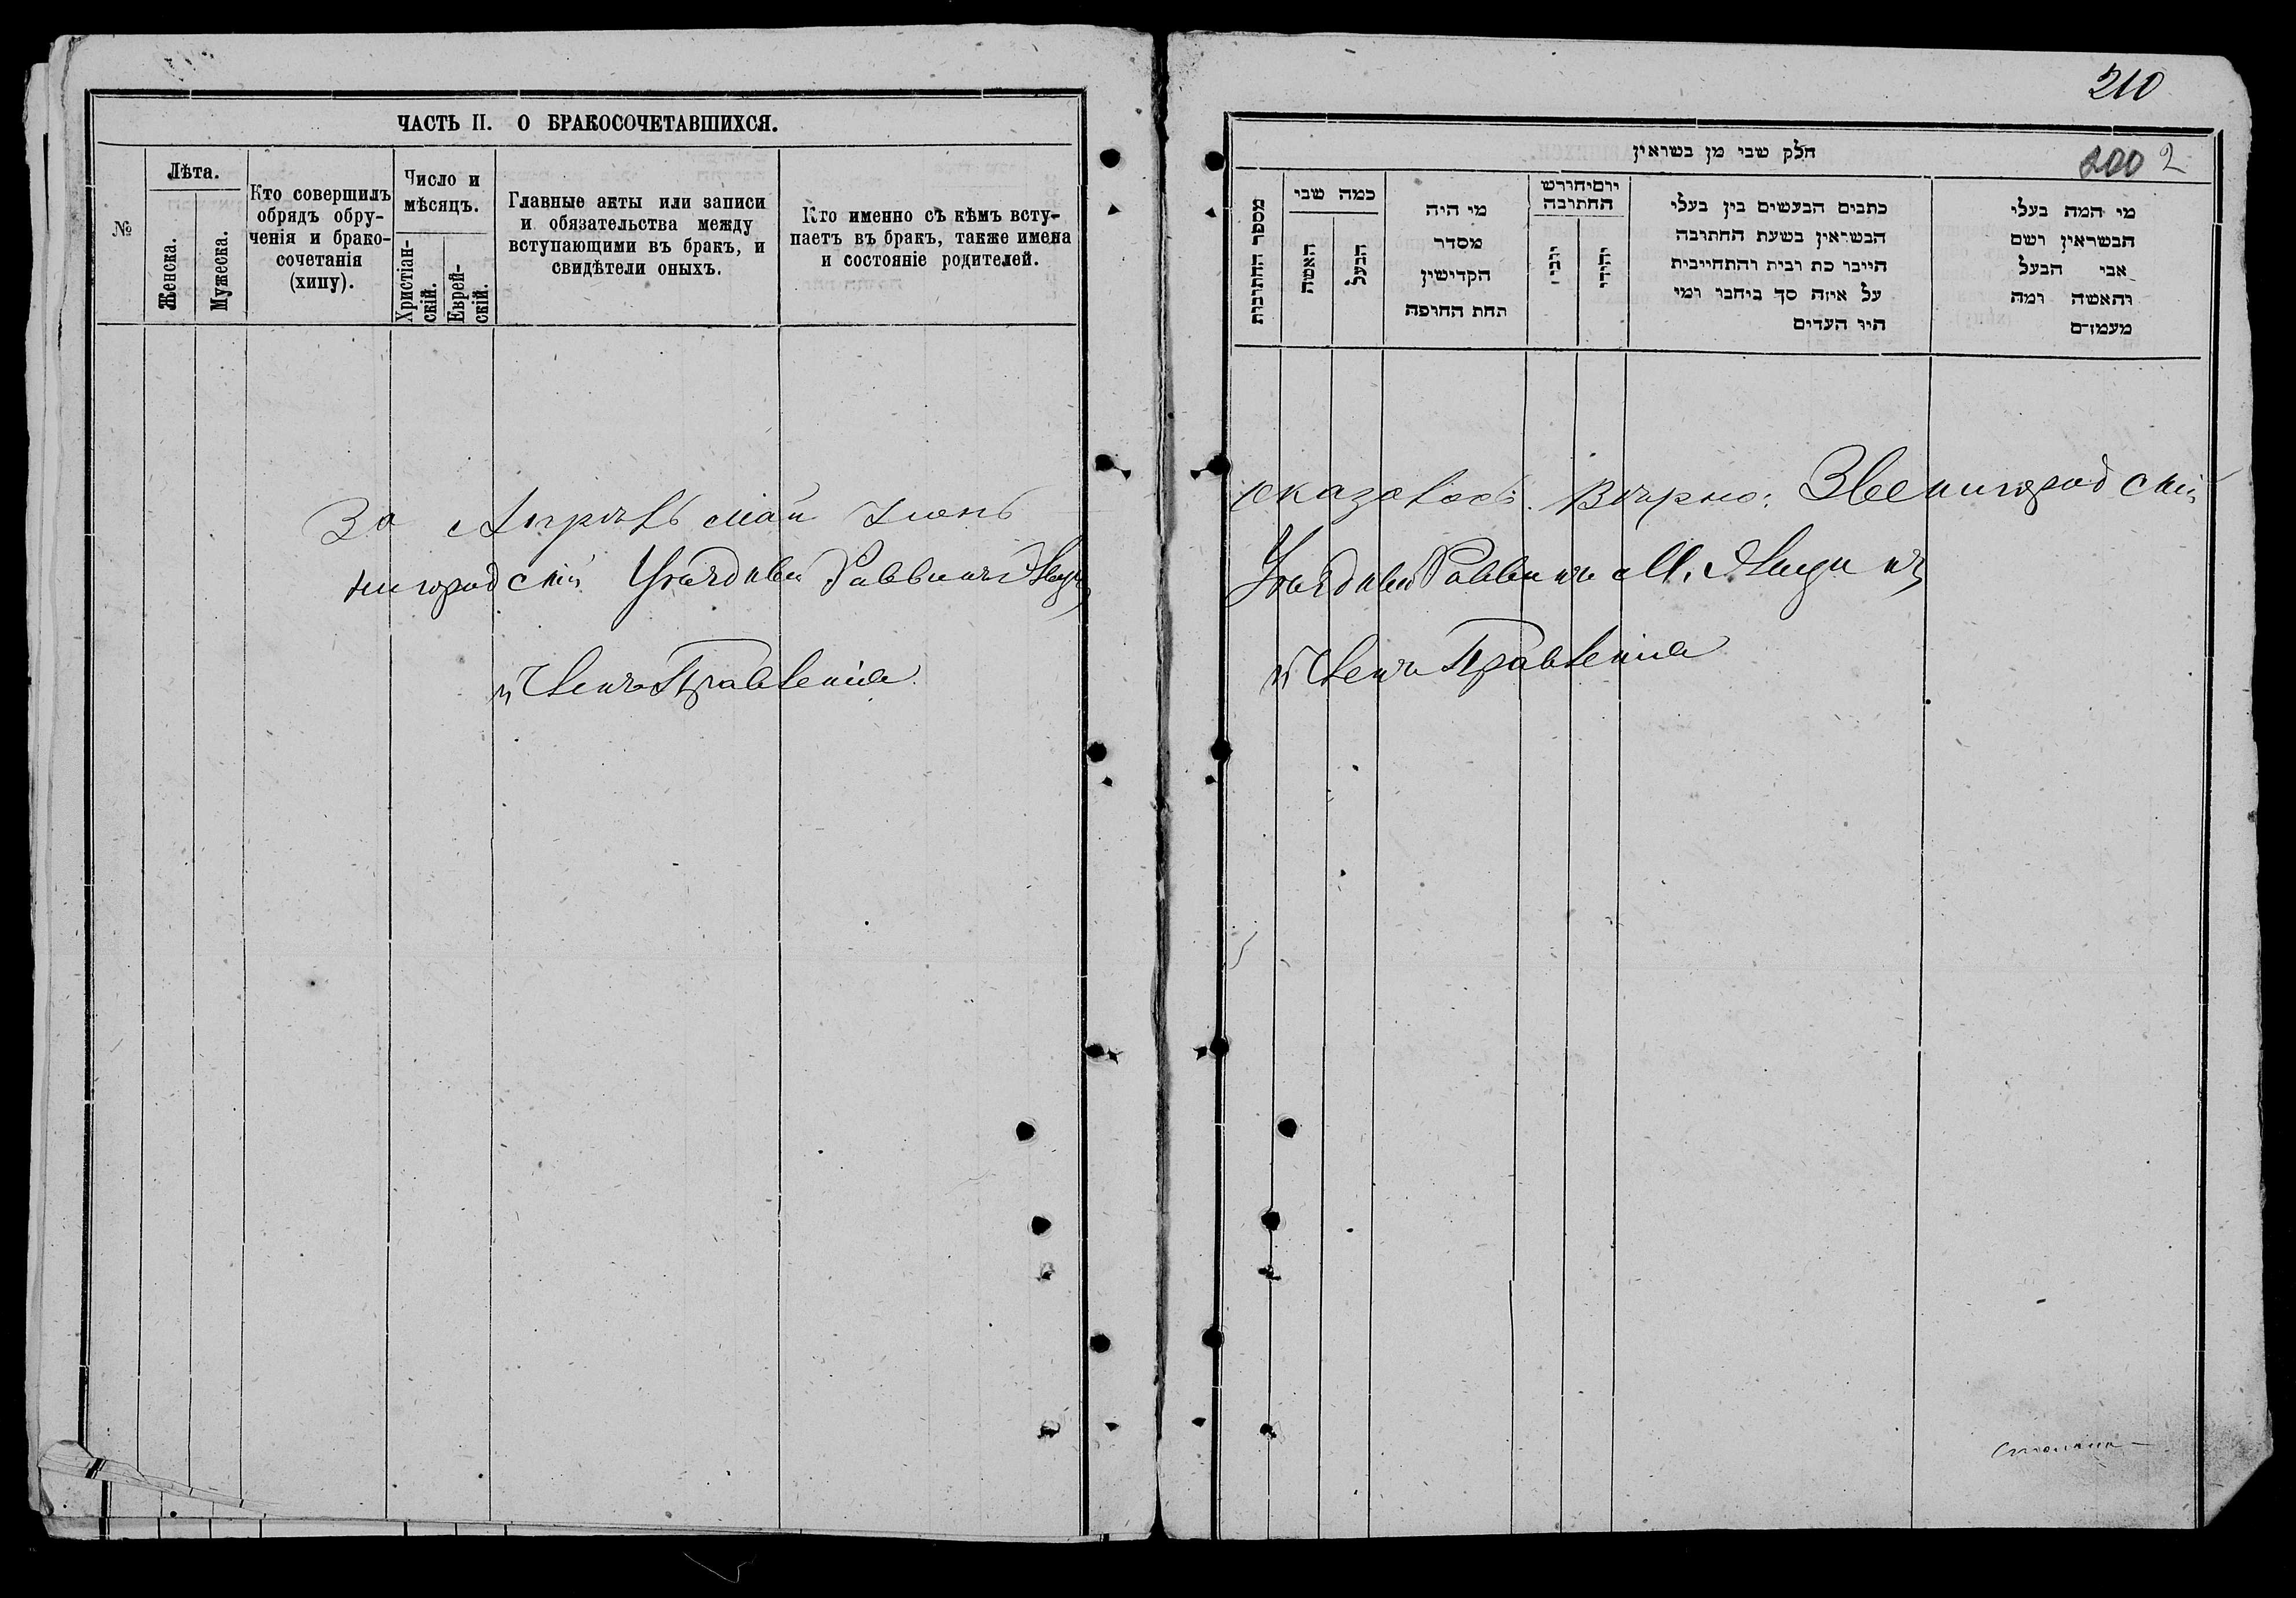 ЧАСТЬ II. О БРАКОСОЧЕТАВШИХСЯ.
№
Лѣта.
Женска.
Мужеска.
Кто совершилъ
обрядъ обру-
ченія и брако-
сочетанія
(хипу).
Число и
мѣсяцъ.
Христіан-
скій.
Еврей-
скій.
Главные акты или записи
и обязательства между
вступающими въ бракъ, и
свидѣтели оныхъ.
Кто именно съ кѣмъ всту-
паетъ въ бракъ, также имена
и состояніе родителей.
За Апрѣль Май Іюнь
нигородскій Уѣздный Раввинъ
и Членъ Правленія
210
200 2
חלק שבי מן בשראין
מספר החתובות
כמה שבי
האשה
הבעל
מי היה
מסדר
הקדישין
תחת החופה
החתובה
כתבים הבעשים בין בעלי
הבשראין בשעת החתובה
הייבו כת ובית והתחייבית
על איזה סך ביחבו ומי
היו העדים
מי המה בעלי
הבשראין ושם
אבי הבעל
והאשה ומה
оказалось. Вѣрно: Звенигородскій
Уѣздный Раввинъ М.
и Членъ Правленія